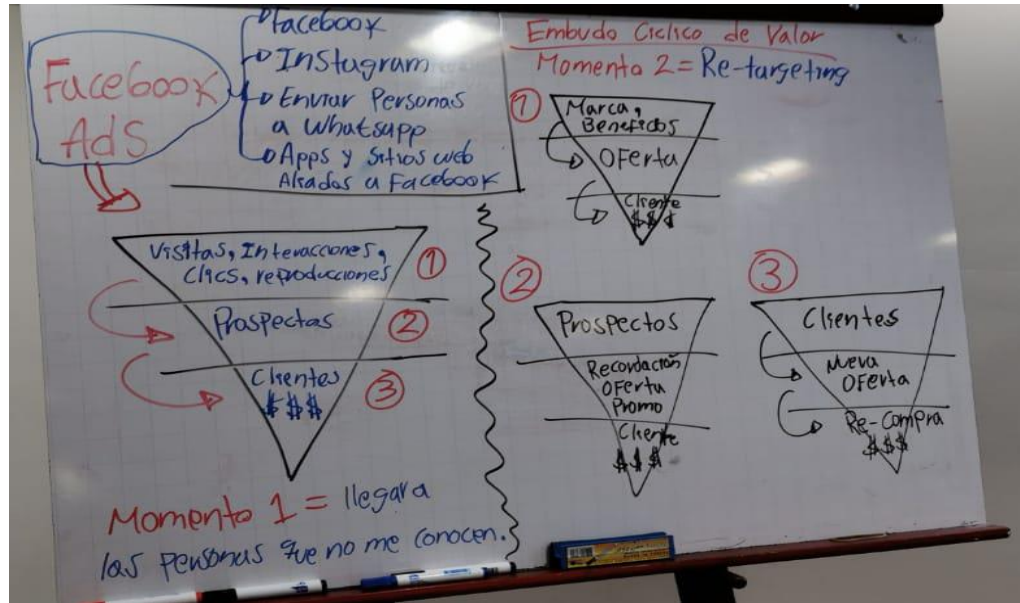 Facebook
Ads
Facebook
Instagram
Enviar Personas
a Whatsapp
Apps y Sitios web
Aliados a Facebook
Visitas, Interacciones,
Clics, reproducciones
1
Prospectas
2
Clientes
$$$
3
Momento 1 = llegar a
las personas que no me conocen.
Embudo Ciclico de Valor
Momento 2 = Re-targeting
1
Marca,
Beneficios
Oferta
Cliente
$$$
2
Prospectos
Recordación
Oferta
Promo
Cliente
$$$
3
Clientes
Nueva
Oferta
Re-Compra
$$$